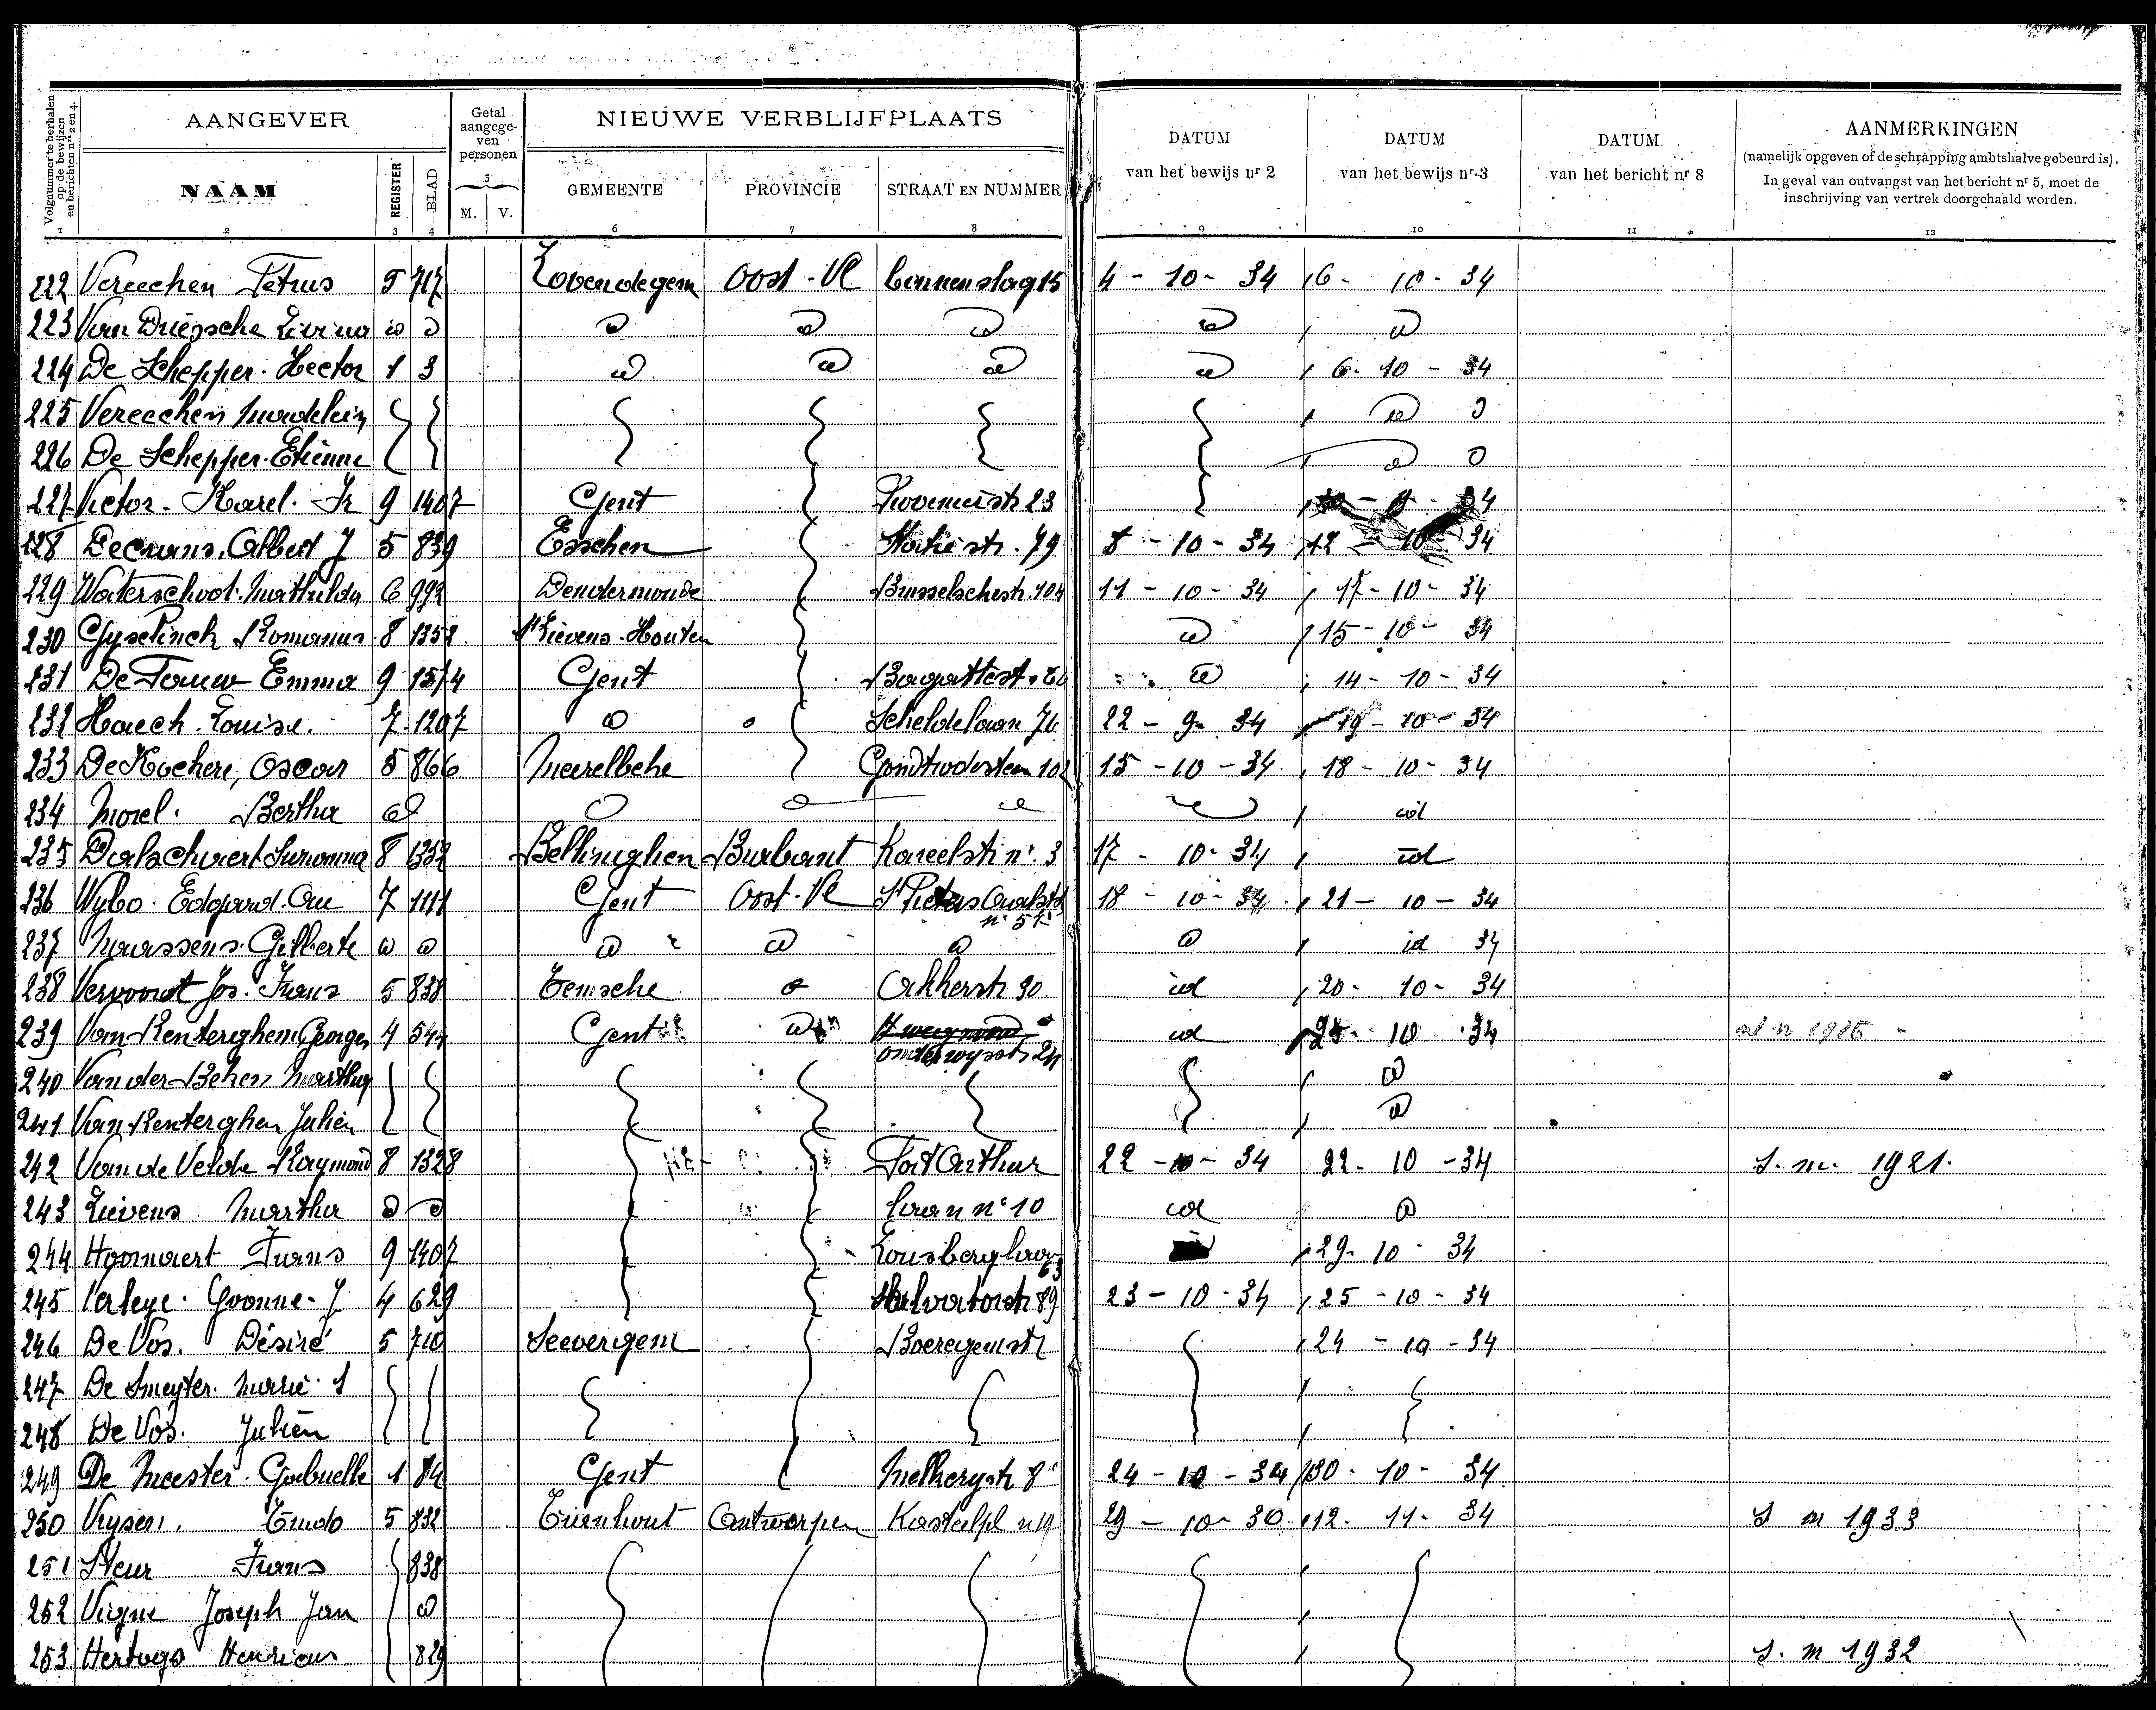 Volgnummer te herhalen op de bewijzen en berichten nrs 2 en 4.
AANGEVER
Getal aangege-ven personen
NIEUWE VERBLIJFPLAATS
DATUM van het bewijs nr 2
DATUM van het bewijs nr 3
DATUM van het bericht nr 8
AANMERKINGEN
(namelijk opgeven of de schrapping ambtshalve gebeurd is).
In geval van ontvangst van het bericht nr 5, moet de inschrijving van vertrek doorgehaald worden.
NAAM REGISTER BLAD M. V. GEMEENTE PROVINCIE STRAAT EN NUMMER
1 2 3 4 5 6 7 8 9 10 11 12
222 Vereecken Petrus 5 717 Lovendegem Oost-Vl binnenslag 15 4-10-34 6-10-34
223 Van Driessche Livina id id id id id id id
224 De Schepper Hector 1 3 id id id id 6-10-34
225 Vereecken id
226 De Schepper Etienne id
227 Victor Karel 9 1407 Gent 23
228 Albert J 5 839 Esschen Statiestr. 79 8-10-34 12-10-34
229 Waterschoot Mathilda 6 992 Dendermonde Brusselschestr. 104 11-10-34 17-10-34
230 Gyselinck Romanus 8 1352 St Lievens-Houtem id 15-10-34
231 De Pauw Emma 9 1574 Gent Bagattestr. id 14-10-34
232 Haeck Louise 7 1207 id Scheldelaan 76 22-9-34 19-10-34
233 De Kockere, Oscar 5 866 Meerelbeke 15-10-34 18-10-34
234 Morel Bertha id id
235 8 1352 Bellinghen Brabant Kareelstr nr. 3 17-10-34 id
236 Wybo Edgard 7 1111 Gent Oost-Vl St Pieters n° 57 18-10-34 21-10-34
237 Gilberte id id id id id id id 34
238 Vervondt Jos. Frans 5 838 Temsche id Akkerstr 90 id 20-10-34
239 Van Renterghem Georges 4 544 Gent id Onderwysstr 24 id 25-10-34
240 Van der Beken Martha id
241 Van Renterghem Julien id
242 Van de Velde Raymond 8 1328 Port Arthur 22-10-34 22-10-34 S. m. 1921.
243 Lievens Martha id id laan n° 10 id id
244 Hoornaert Frans 9 1407 Lousberglaan 63 29-10-34
245 Verleye Yvonne J 4 629 Salvatorstr 89 23-10-34 25-10-34
246 De Vos Désiré 5 710 Seevergem Boeregemstr 24-10-34
247 De Smeyter Marie S
248 De Vos Julien
249 De Meester Gabrielle 1 84 Gent Melkerystr 8 24-10-34 30-10-34
250 5 832 Turnhout Antwerpen Kasteelpl n 19 29-10-30 12-11-34 S m 1933
251 Steur Frans 838
252 Joseph Jan id
253 Hertogs Henricus 829 S. m 1932